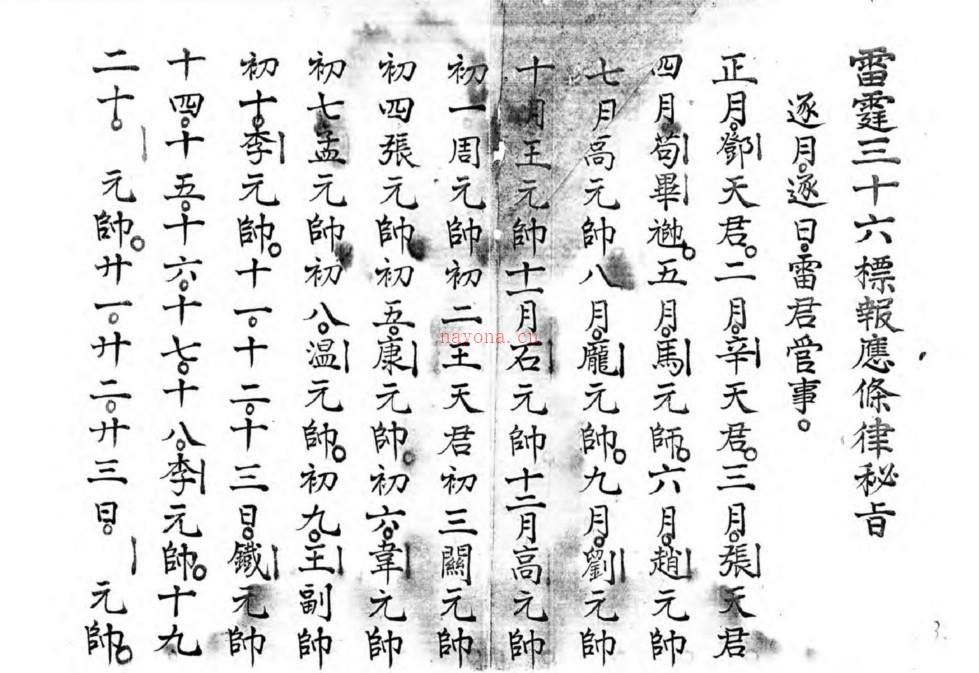 雷霆三十六標報應條律秘旨
逐月。逐日。雷君管事。
正月。鄧天君。二月。辛天君。三月。張天君
四月。苟畢逊。五月。馬元師。六月。趙元帥
七月高元帥八月。龐元帥。九月。劉元帥
十月王元帥十一月石元帥十二月高元帥
初一周元帥初二王天君初三關元帥
初四張元帥初五。康元帥。初六。韋元帥
初七孟元帥初八。溫元帥。初九。王副帥
初十。李元帥。十一。十二。十三日。鐵元帥
十四。十五。十六。十七。十八。李元帥。十九
二十。 元帥。廿一。廿二。廿三日。 元帥。
nayona.cn
3.